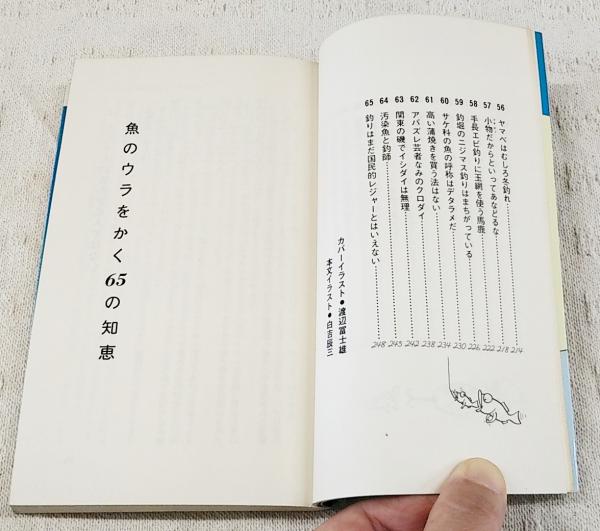 56 ヤマベはむしろ冬釣れ……214
57 小物だからといってあなどるな……218
58 手長エビ釣りに玉網を使う馬鹿……222
59 釣堀のニジマス釣りはまちがっている……226
60 サケ科の魚の呼称はデタラメだ……230
61 高い蒲焼きを買う法はない……234
62 アバズレ芸者なみのクロダイ……238
63 関東の磯でイシダイは無理……242
64 汚染魚と釣師……245
65 釣りはまだ国民的レジャーとはいえない……248
カバーイラスト●渡辺冨士雄
本文イラスト●白吉辰三
魚のウラをかく65の知恵